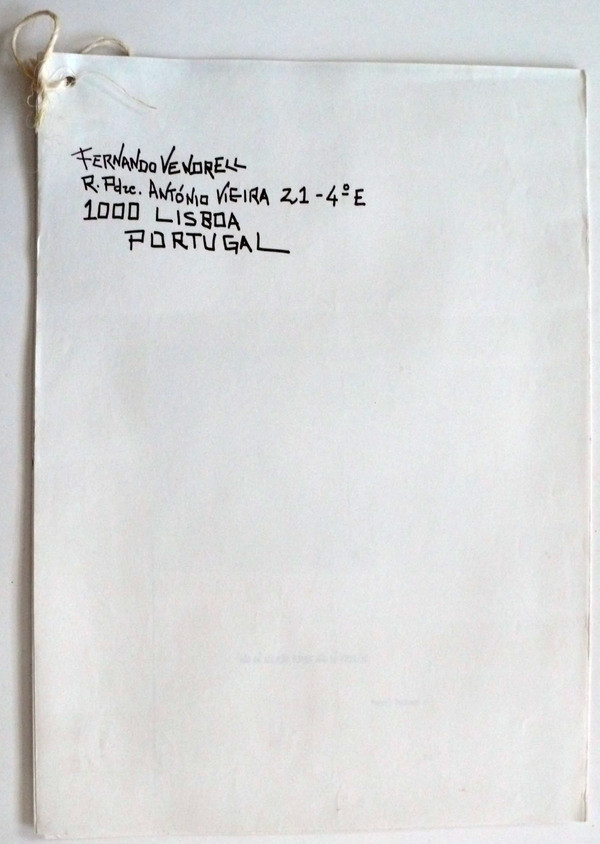 FERNANDO VENDRELL
R. Pdre. ANTÓNIO VIEIRA 21-4º E
1000 LISBOA
PORTUGAL